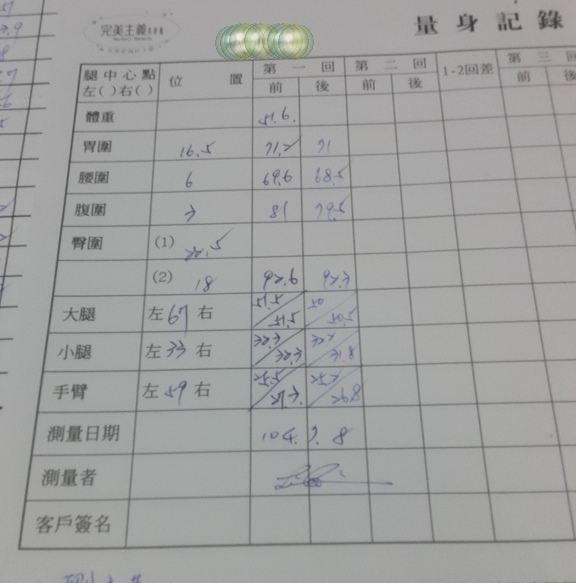 完美主義
量身記錄
腿中心點 位置 第一回 第二回 1-2回差 第三回
左( )右( ) 前 後 前 後 前 後
體重 51.6.
胃圍 16.5 71.2 71
腰圍 6 69.6 68.5
腹圍 7 81 79.5
臀圍 (1) 22.5
(2) 18 92.6 92.3
大腿 左67右 51.5 51.5 50 50.5
小腿 左33右 32.3 32.3 322 31.8
手臂 左59右 25.5 27.3 25.2 26.8
測量日期 104.7.8
測量者
客戶簽名